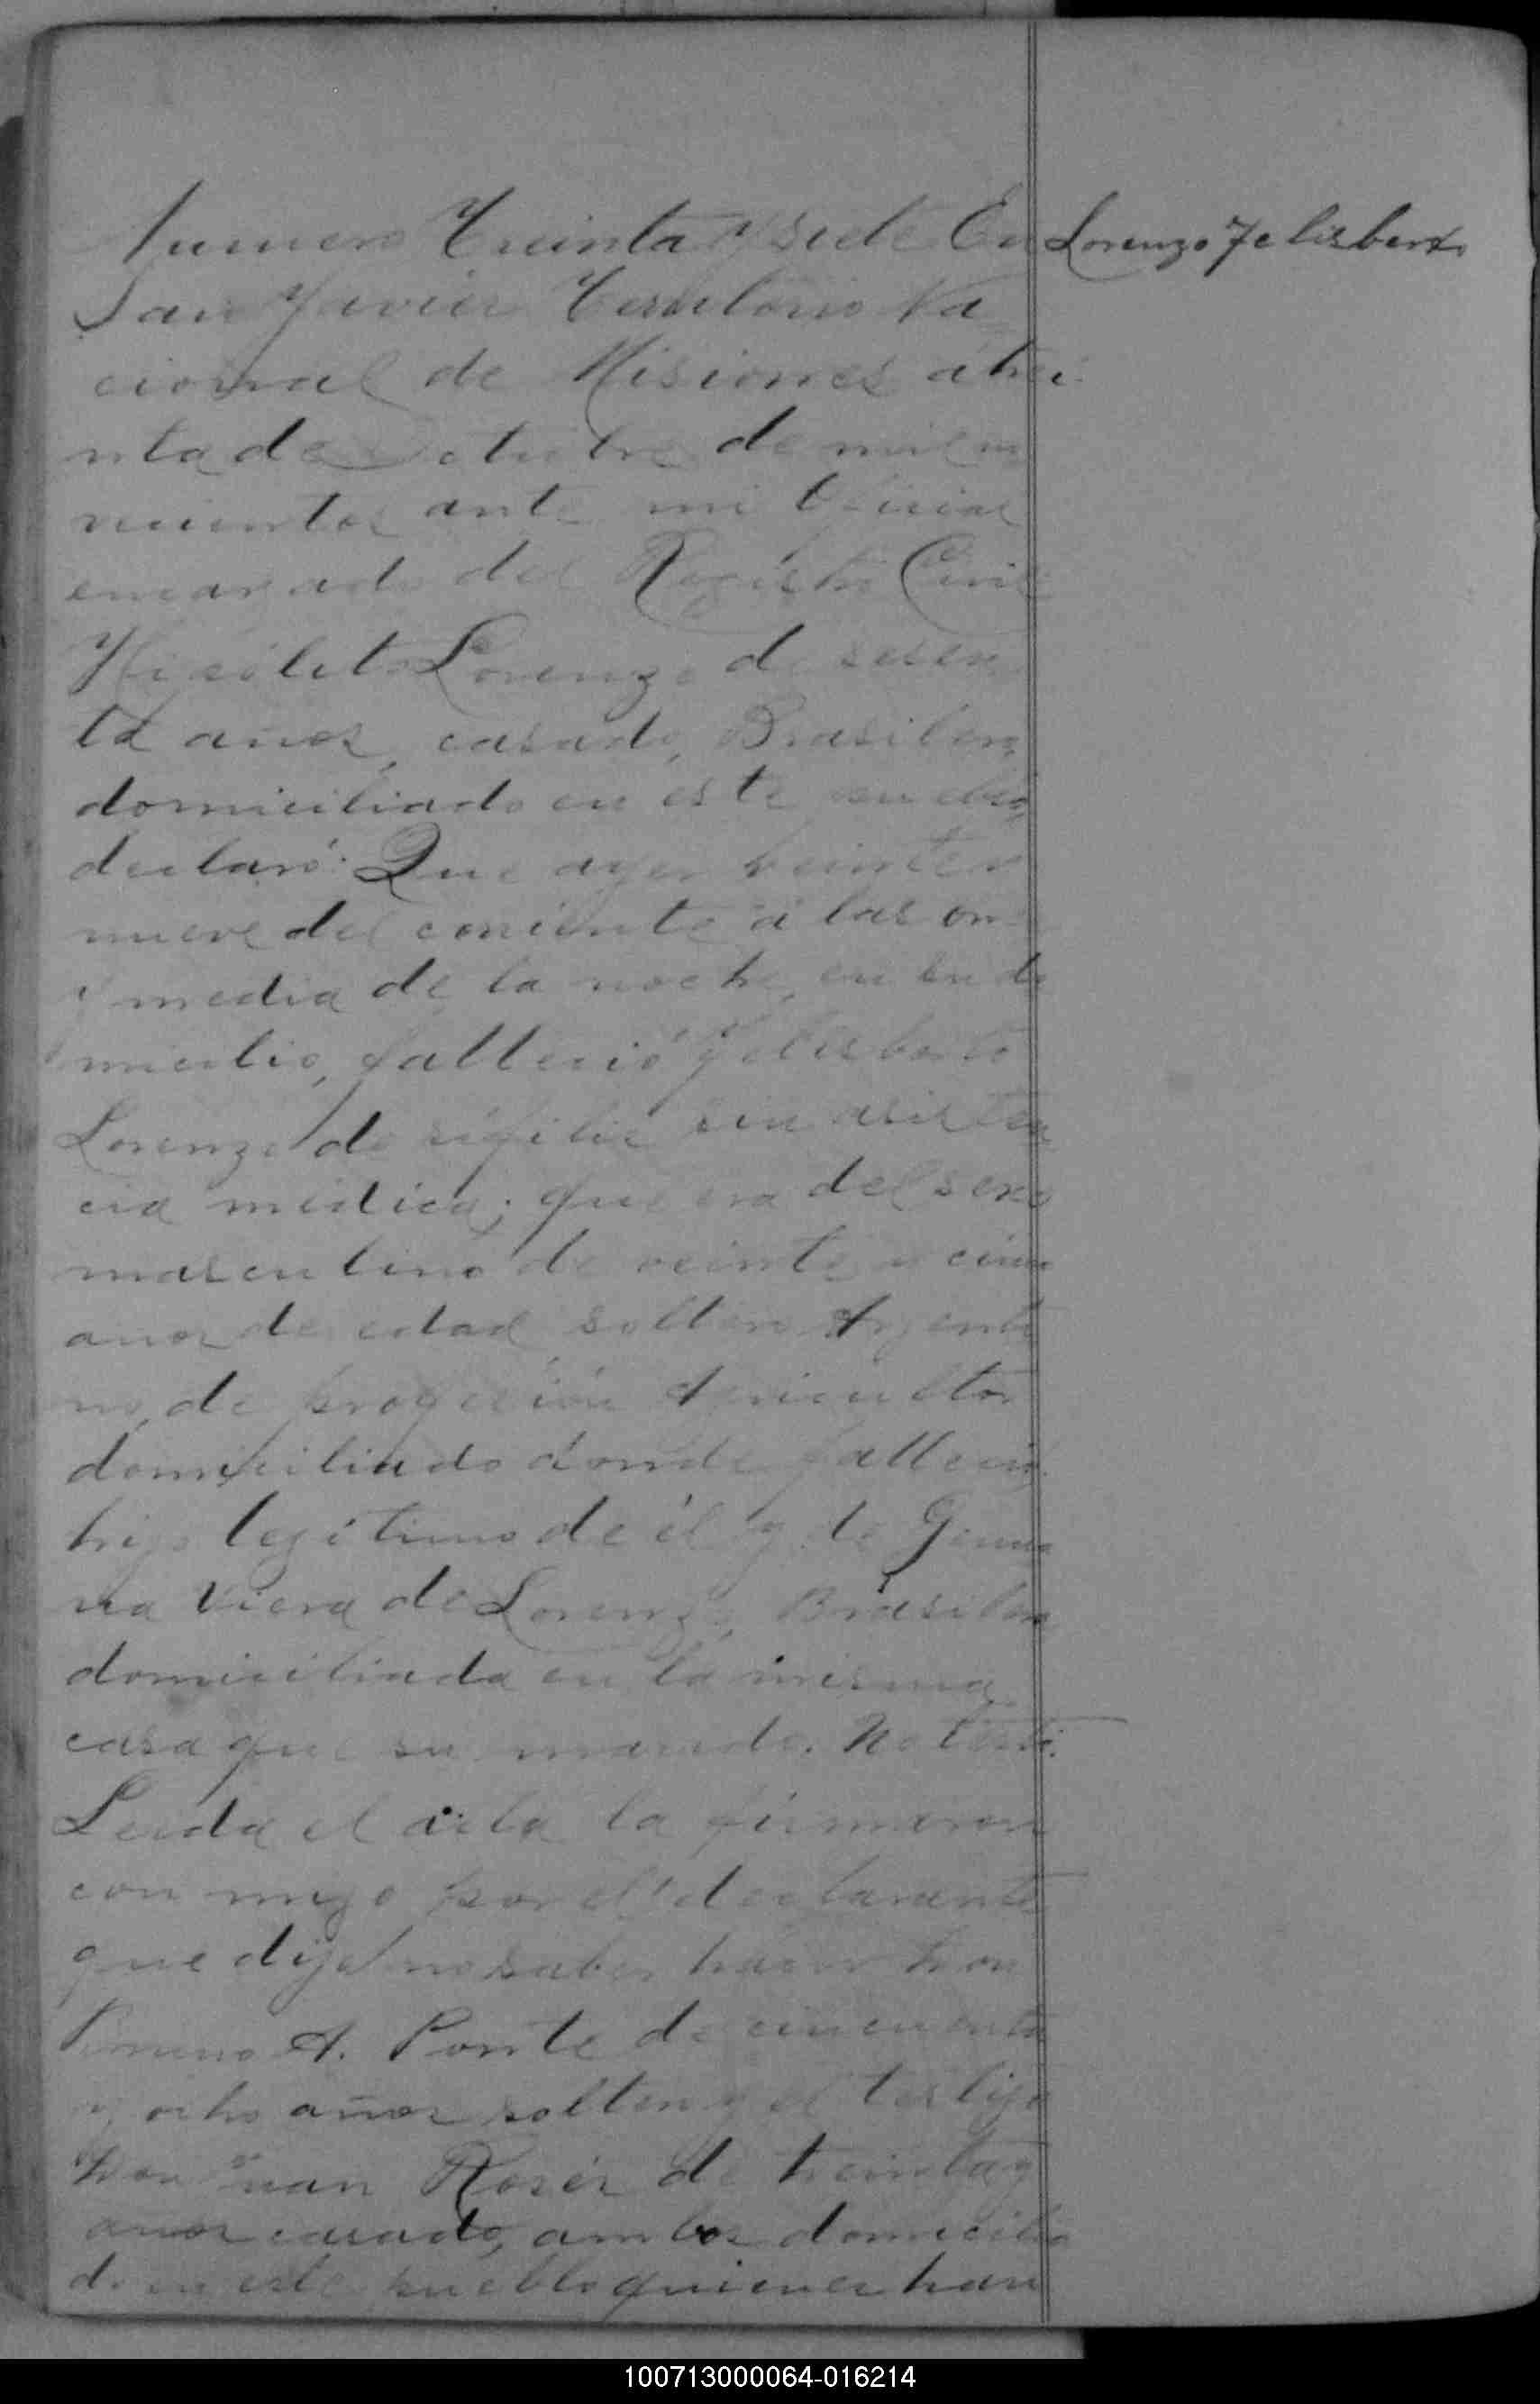 Numero Treinta y siete En
Lorenzo Felisberto
San Javier Territorio Na
cional de Misiones á trei
nta de Octubre de mil no
vecientos ante mi Oficial
encargado del Registro Civil
Lorenzo de sesen
ta años, casado, Brasilero,
domiciliado en este pueblo,
declaró: Que ayer veinte y
nueve del corriente á las on
y media de la noche, en su do
micilio, falleció Felisberto
Lorenzo de sífilis sin asisten
cia médica; que era del sexo
masculino de veinte y cinco
años de edad soltero Argenti
no, de profeción Agricultor
domiciliado donde falleció
hijo legítimo de él y de
Viera de Lorenzo, Brasilera
domiciliada en la misma
casa que su marido. No testó.
Leida el acta la firmaron
con migo por el declarante
que dijo no saber hacer Don
A. Ponte de cincuenta
y ocho años soltero y el testigo
Don Juan de treinta y
años casado, ambos domicilia
do en este pueblo quienes han
100713000064-016214